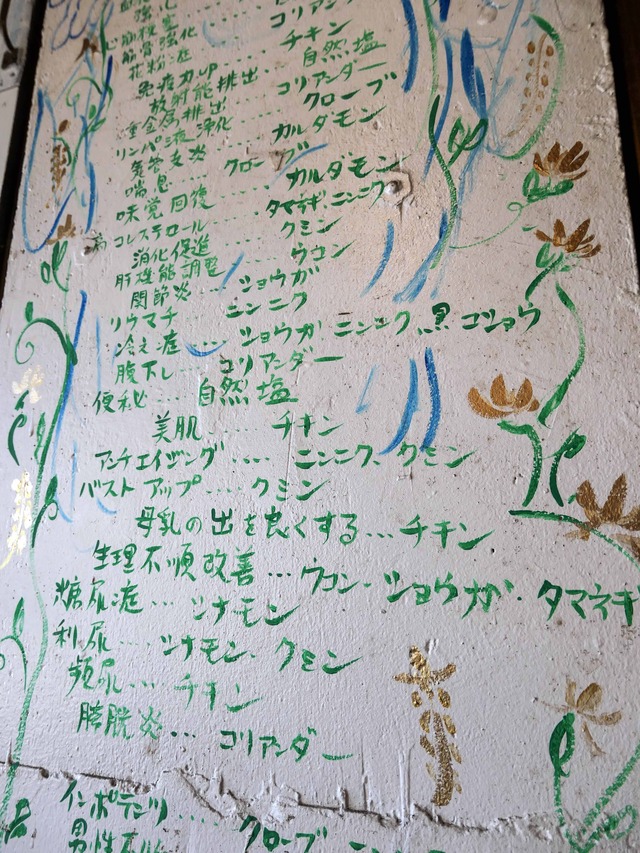 強化 ........ コリアンダー
筋骨強化 ........ チキン
花粉症 ........ 自然塩
免疫力UP ........ コリアンダー
放射能排出 ........ クローブ
重金属排出 ........ カルダモン
リンパ液浄化
気管支炎 ........ クローブ
喘息 ........ カルダモン
味覚回復 ........ タマネギ、ニンニク
高コレステロール ........ クミン
消化促進 ........ ウコン
肝機能調整
関節炎 ... ショウガ
リウマチ ..... ニンニク
冷え症 ..... ショウガ ニンニク、黒コショウ
腹下し ..... コリアンダー
便秘 ..... 自然塩
美肌 ..... チキン
アンチエイジング .... ニンニク、クミン
バストアップ .... クミン
母乳の出を良くする... チキン
生理不順改善 ... ウコン・ショウガ・タマネギ
糖尿症 ... シナモン
利尿 .... シナモン、クミン
頻尿... チキン
膀胱炎 ... コリアンダー
インポテンツ ..... クローブ